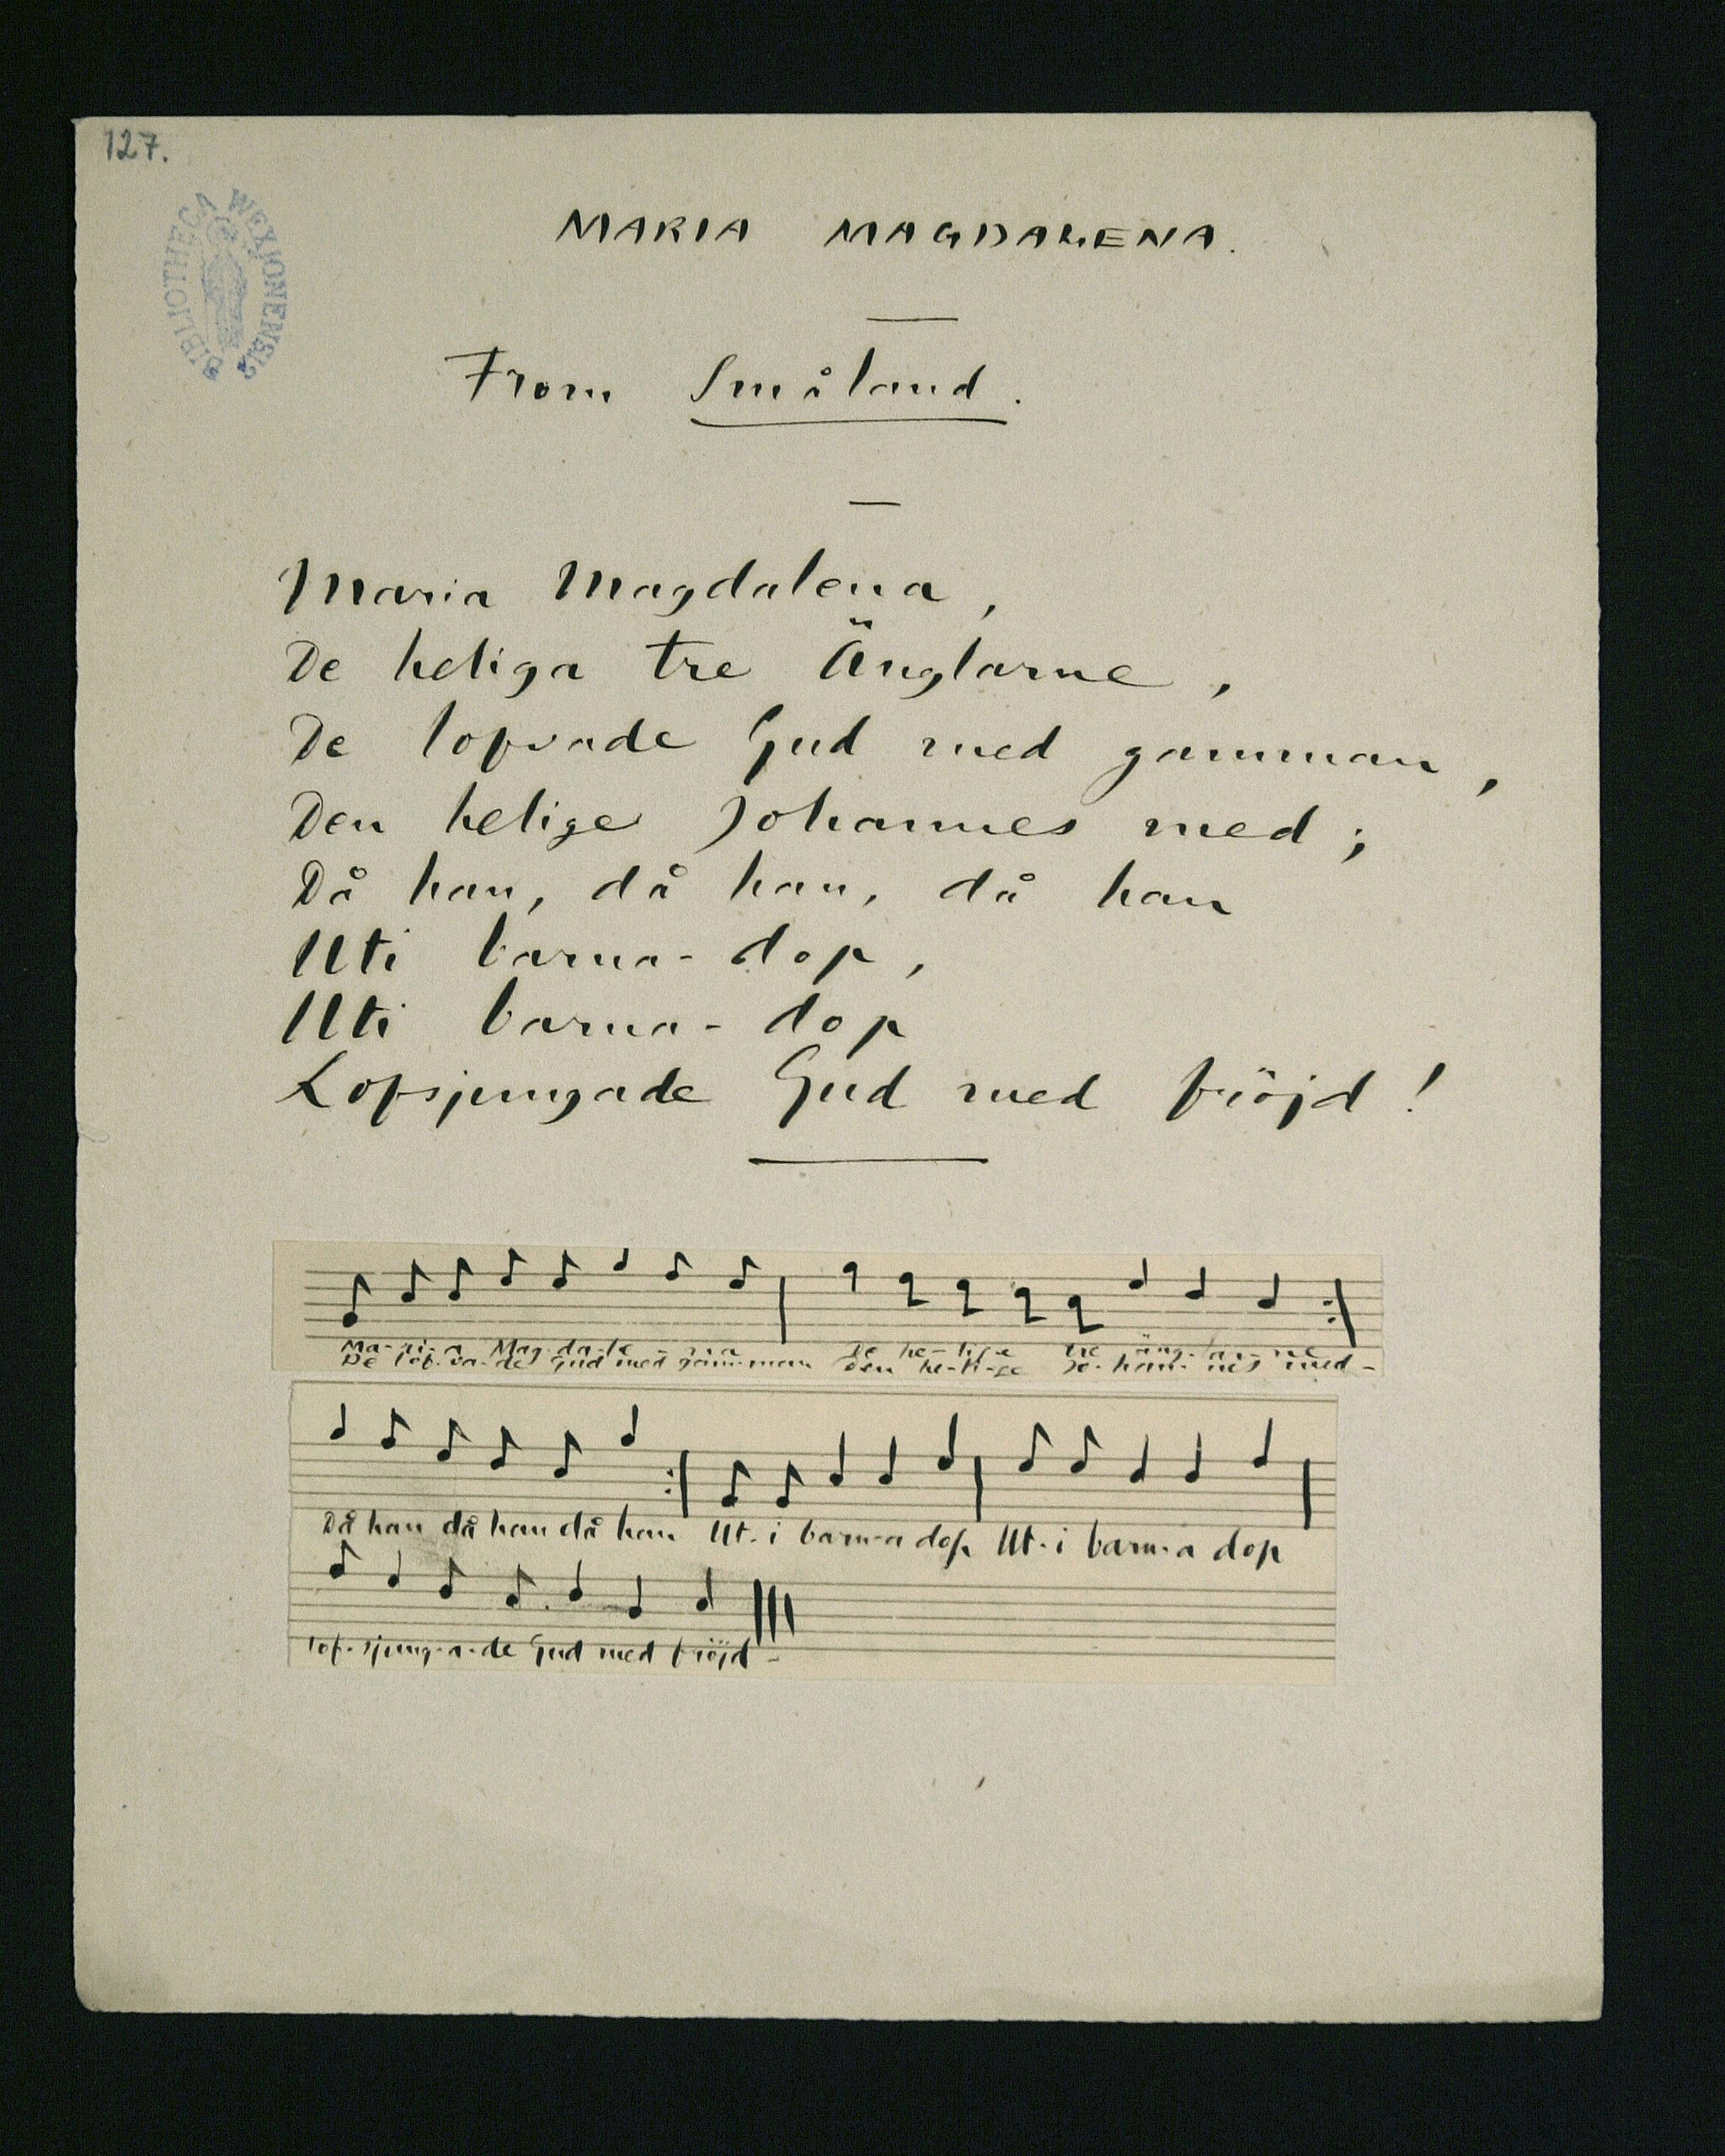 127.
BIBLIOTHECA WEXIONENSIS
MARIA MAGDALENA.
From Småland.
Maria Magdalena,
De heliga tre Änglarne,
De lofvade Gud med gamman,
Den helige Johannes med;
Då han, då han, då han
Uti barna-dop,
Uti barna-dop
Lofsjungade Gud med fröjd!
Ma-ri-a Mag-da-le-na De he-lig-a tre äng-lar-ne
De lof-va-de Gud med gam-man den he-li-ge Jo-han-nes med-
Då han då han då han Ut-i barn-a dop Ut-i barn-a dop
lof-sjung-a-de Gud med fröjd-